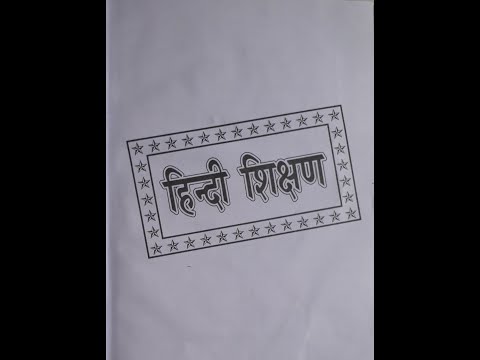 हिन्दी शिक्षण